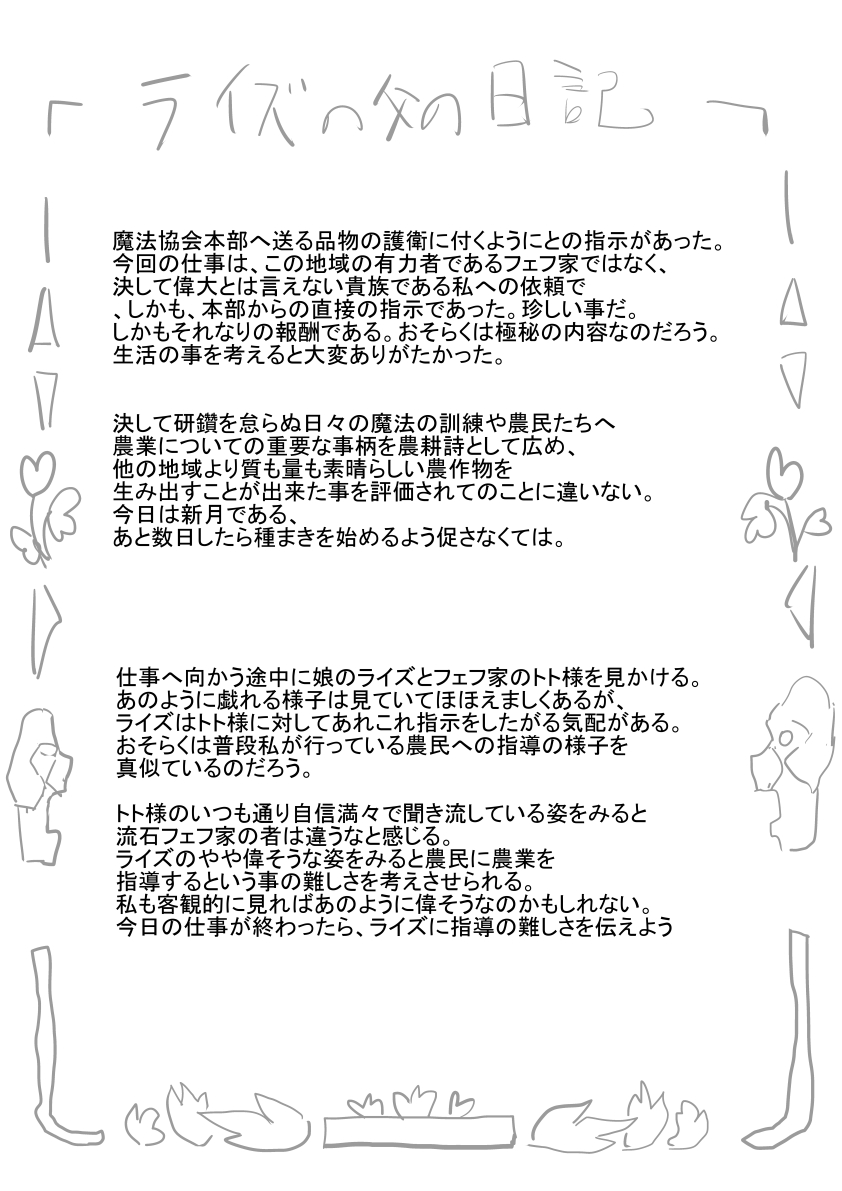 「ライズの父の日記」
魔法協会本部へ送る品物の護衛に付くようにとの指示があった。
今回の仕事は、この地域の有力者であるフェフ家ではなく、
決して偉大とは言えない貴族である私への依頼で
、しかも、本部からの直接の指示であった。珍しい事だ。
しかもそれなりの報酬である。おそらくは極秘の内容なのだろう。
生活の事を考えると大変ありがたかった。
決して研鑽を怠らぬ日々の魔法の訓練や農民たちへ
農業についての重要な事柄を農耕詩として広め、
他の地域より質も量も素晴らしい農作物を
生み出すことが出来た事を評価されてのことに違いない。
今日は新月である、
あと数日したら種まきを始めるよう促さなくては。
仕事へ向かう途中に娘のライズとフェフ家のトト様を見かける。
あのように戯れる様子は見ていてほほえましくあるが、
ライズはトト様に対してあれこれ指示をしたがる気配がある。
おそらくは普段私が行っている農民への指導の様子を
真似ているのだろう。
トト様のいつも通り自信満々で聞き流している姿をみると
流石フェフ家の者は違うなと感じる。
ライズのやや偉そうな姿をみると農民に農業を
指導するという事の難しさを考えさせられる。
私も客観的に見ればあのように偉そうなのかもしれない。
今日の仕事が終わったら、ライズに指導の難しさを伝えよう